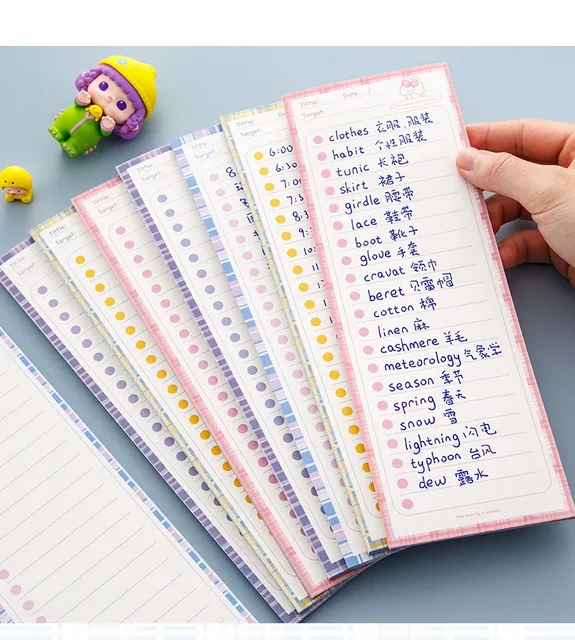 Title: Date: /
Target:
clothes 衣服,服装
habit 个性服装
tunic 长袍
skirt 裙子
girdle 腰带
lace 鞋带
boot 靴子
glove 手套
cravat 领巾
beret 贝雷帽
cotton 棉
linen 麻
cashmere 羊毛
meteorology 气象学
season 季节
spring 春天
snow 雪
lightning 闪电
typhoon 台风
dew 露水
Title:
Target:
6:00
6:30
7:00
Title:
Target:
Title:
Target:
Title:
Target:
Title:
Target:
Title:
Target: